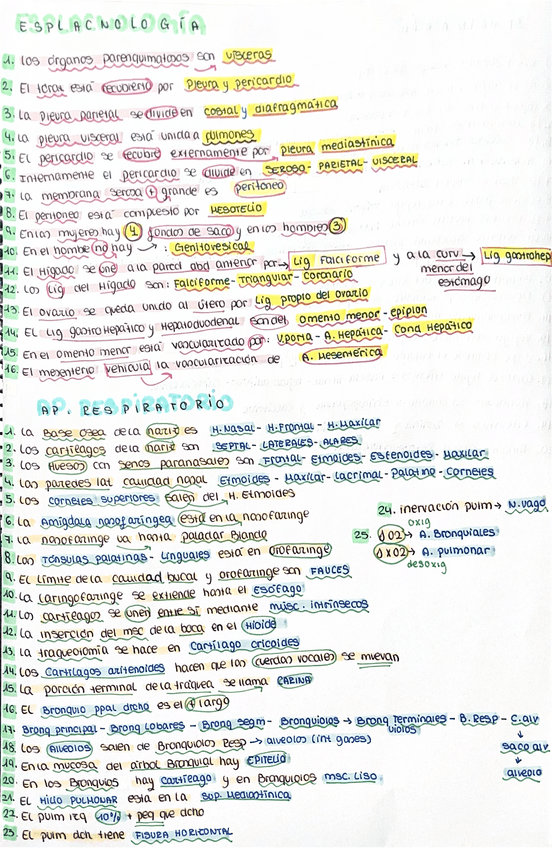 ESPLACNOLOGÍA
1. Los órganos parenquimatosos son vísceras
2. El tórax está recubierto por Pleura y pericardio
3. La Pleura parietal se divide en costal y diafragmática
4. La pleura visceral está unida a pulmones
5. El pericardio se recubre externamente por pleura mediastínica
6. Internamente el pericardio se divide en SEROSO - PARIETAL - VISCERAL
7. La membrana serosa + grande es peritoneo
8. El peritoneo está compuesto por MESOTELIO
9. En las mujeres hay 4 fondos de saco y en los hombres 3
10. En el hombre no hay → : Genitovesical
11. El Hígado se une a la pared abd anterior por → Lig Falciforme y a la curv menor del estómago → Lig gastrohep
12. Los Lig del Hígado son: Falciforme - Triangular - Coronario
13. El ovario se queda unido al útero por Lig propio del ovario
14. El Lig gastroHepático y Hepatoduodenal son del omento menor - epiplon
15. En el omento menor está vascularizado por: V.porta - A. Hepática - Cond Hepático
16. El mesenterio vehicula la vascularización de A. Mesentérica
AP. RESPIRATORIO
1. La Base osea de la nariz es H. Nasal - H. Frontal - H. Maxilar
2. Los cartílagos de la nariz son SEPTAL - LATERALES - ALARES
3. Los Huesos con senos paranasales son Frontal - Etmoides - Esfenoides - Maxilar
4. Las paredes lat cavidad nasal Etmoides - Maxilar - Lacrimal - Palatino - Cornetes
5. Los cornetes superiores salen del H. Etmoides
6. La Amígdala nasofaríngea está en la nasofaringe
7. La nasofaringe va hasta paladar Blando
8. Las Tónsulas palatinas - Linguales está en orofaringe
9. El límite de la cavidad bucal y orofaringe son FAUCES
10. La laringofaringe se extiende hasta el Esófago
11. Los cartílagos se unen entre sí mediante músc. intrínsecos
12. La inserción del msc de la boca en el Hioide
13. La traqueotomía se hace en Cartílago cricoides
14. Los Cartílagos aritenoides hacen que las cuerdas vocales se muevan
15. La porción terminal de la tráquea se llama CARINA
16. El Bronquio ppal drcho es el + largo
17. Bronq principal - Bronq Lobares - Bronq segm - Bronquiolos → Bronq Terminales - B. Resp - C. alv
uiolos
↓
saco alv
↓
alveolo
18. Los Alveolos salen de Bronquiolos Resp → alveolos (int gases)
19. En la mucosa del arbol Bronquial hay EPITELIO
20. En los Bronquios hay Cartílago y en Bronquiolos msc. liso
21. El Hilio PULMONAR está en la Sup. Mediastínica
22. El pulm izq 10% + peq que dcho
23. El pulm dch tiene FISURA HORIZONTAL
24. inervación pulm → N. vago
25. oxig
↓O2 → A. Bronquiales
↓xO2 → A. pulmonar
desoxig